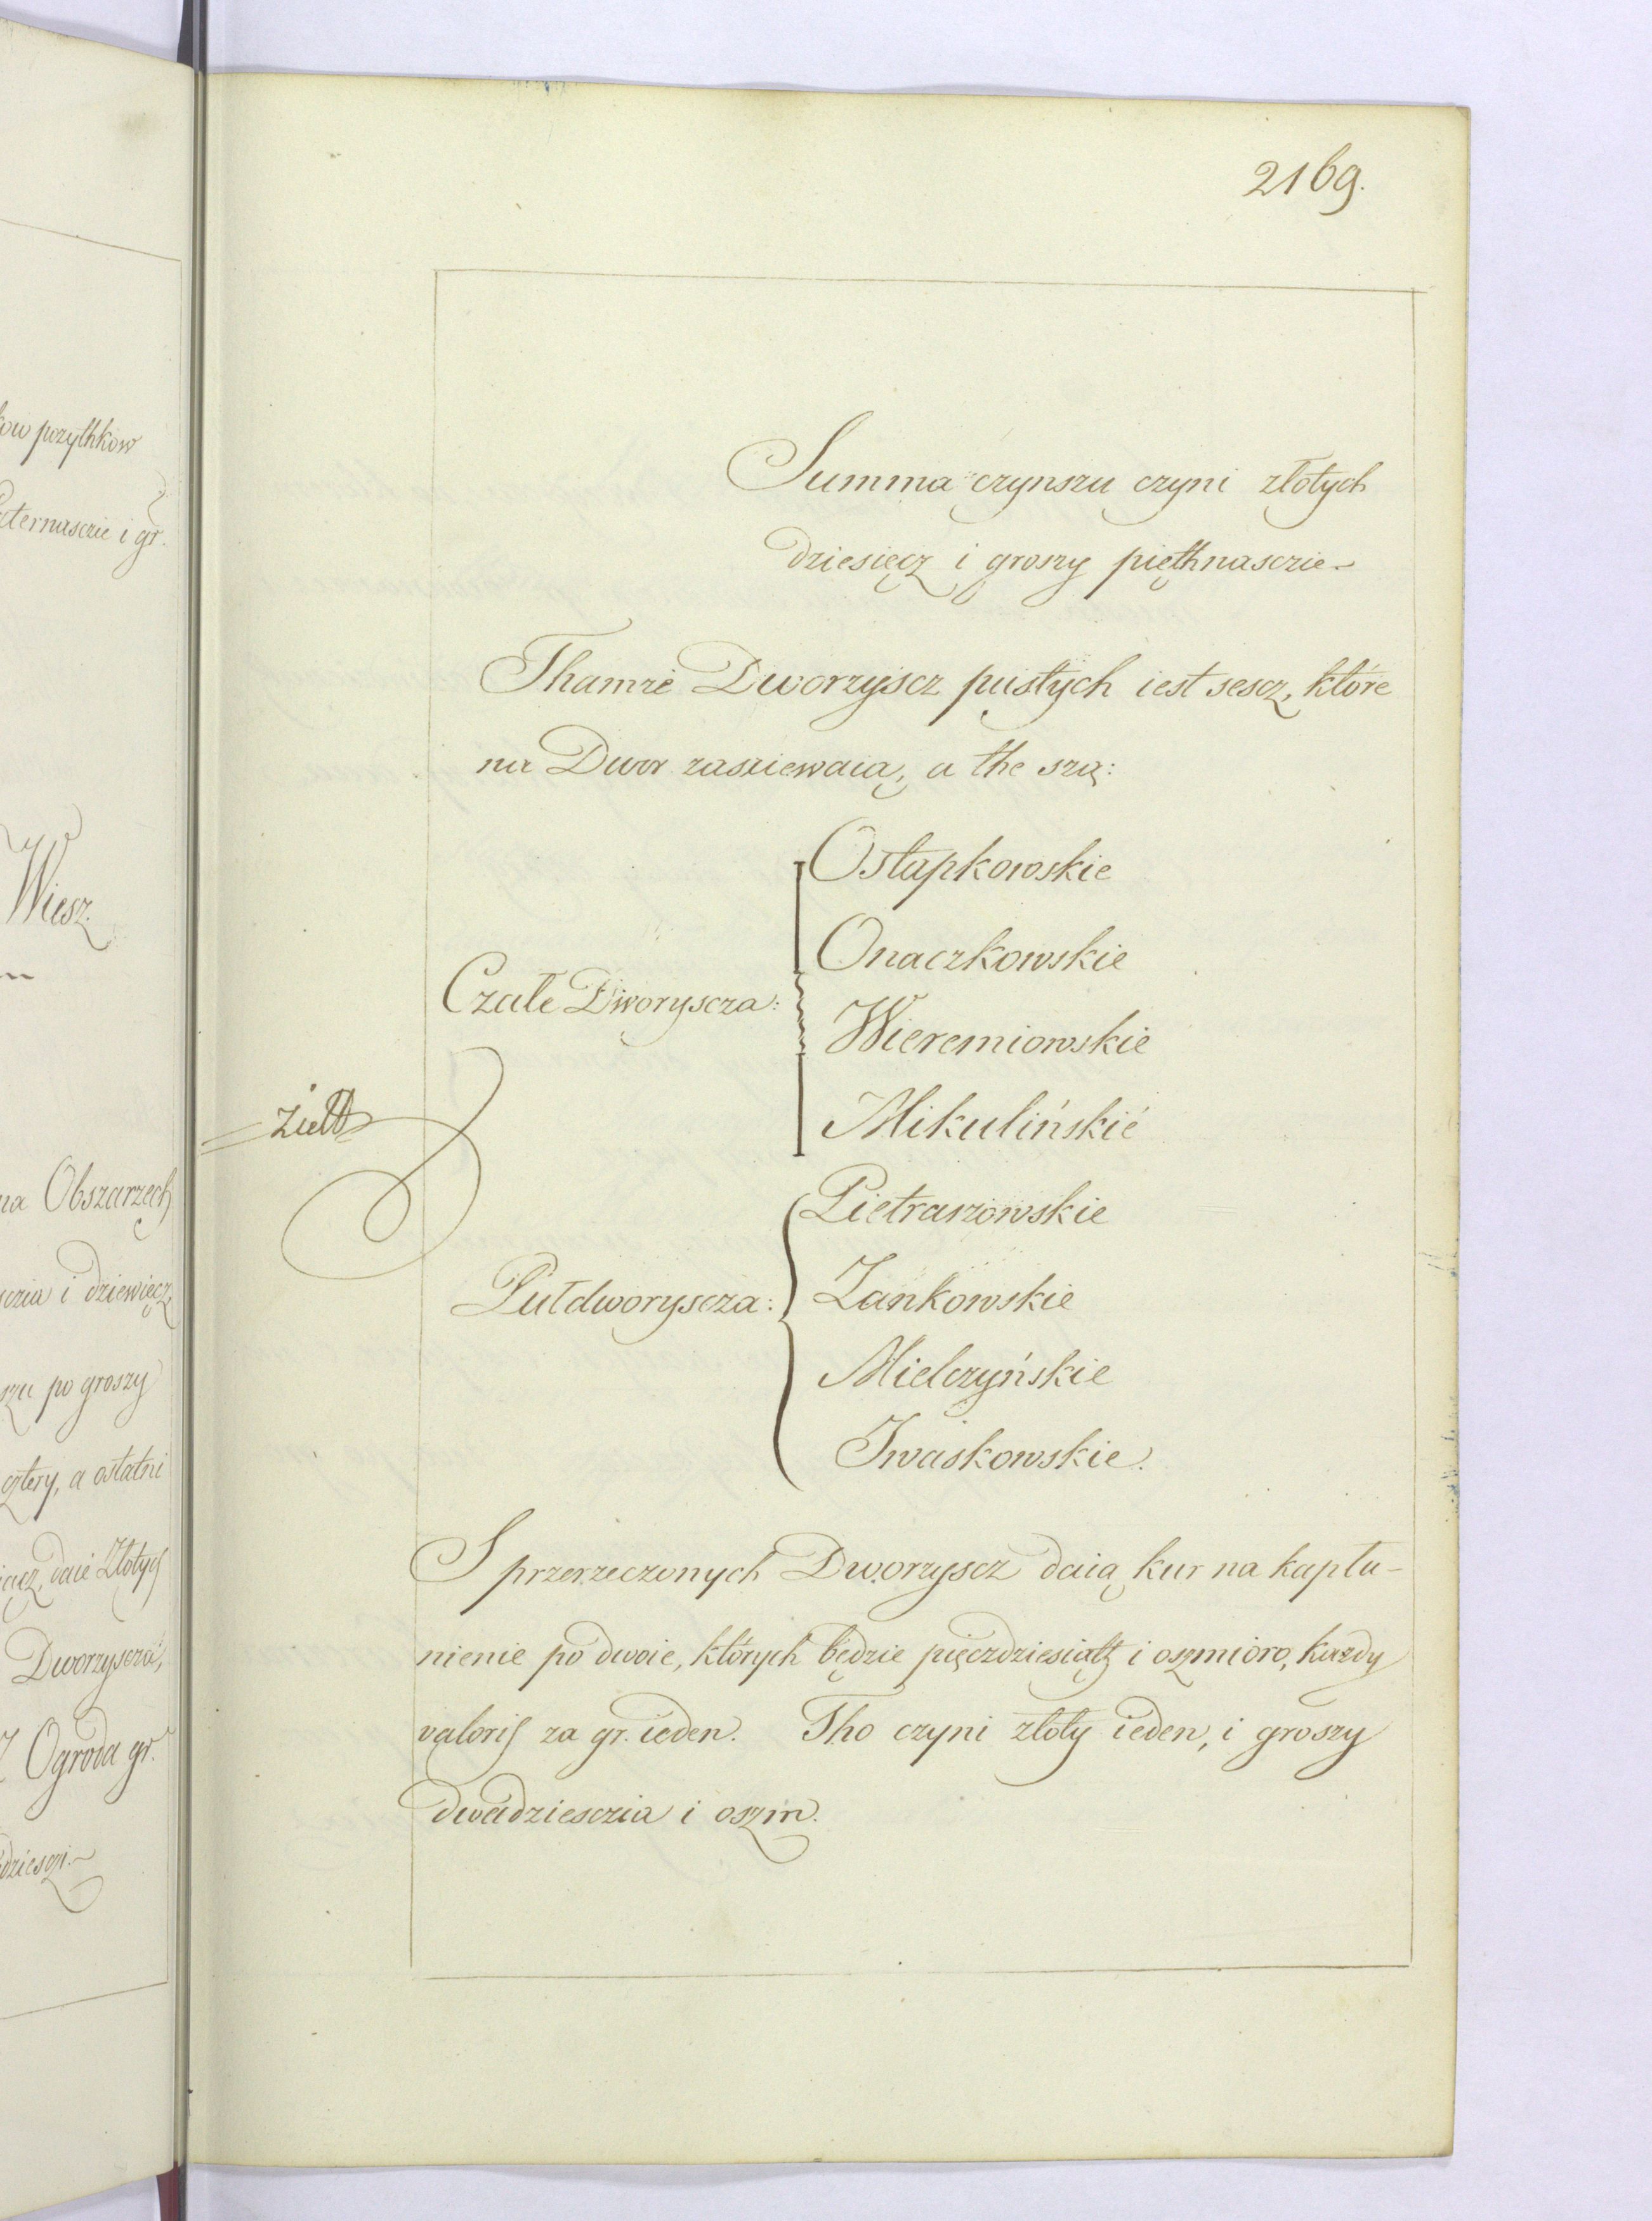 ow pozythkow
czternasczie i gr.
Wiesz.
na Obszarzech
sczia i dziewięcz,
szu po groszy
cztery, a ostatni
iącz, daie Złotych
Dworzyscza,
Z Ogroda gr.
dziesczi.
2169.
Summa czynszu czyni złotych
dziesięcz i groszy pięthnasczie
Thamże Dworzyscz pustych iest sescz, które
na Dwor zasziewaią, a the szą:
Ostapkowskie
Onaczkowskie
Czałe Dworyscza:
Wieremiowskie
Mikulińskie
Pietraszowskie
Pułdworyscza:
Zankowskie
Mielczyńskie
Iwaskowskie.
S przerzeczonych Dworzyscz daią kur na kapłu-
nienie po dwoie, których będzie pięczdziesiąth i oszmioro, każdy
valoris za gr. ieden. Tho czyni złoty ieden, i groszy
dwadziesczia i oszm.